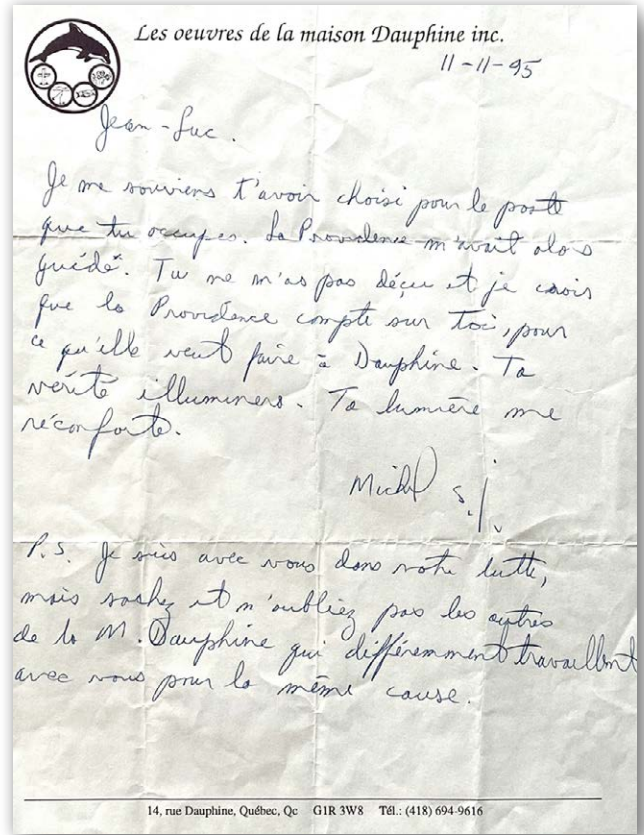 Les oeuvres de la maison Dauphine inc.
11-11-95
Jean-Luc.
Je me souviens t'avoir choisi pour le poste
que tu occupes. La Providence m'avait alors
guidé. Tu ne m'as pas déçu et je crois
que la Providence compte sur toi, pour
ce qu'elle veut faire à Dauphine. Ta
vérité illuminera. Ta lumière me
réconforte.
Michel s.j.
P.S. Je suis avec vous dans votre lutte,
mais sachez et n'oubliez pas les autres
de la M. Dauphine qui différemment travaillent
avec vous pour la même cause.
14, rue Dauphine, Québec, Qc G1R 3W8 Tél.: (418) 694-9616